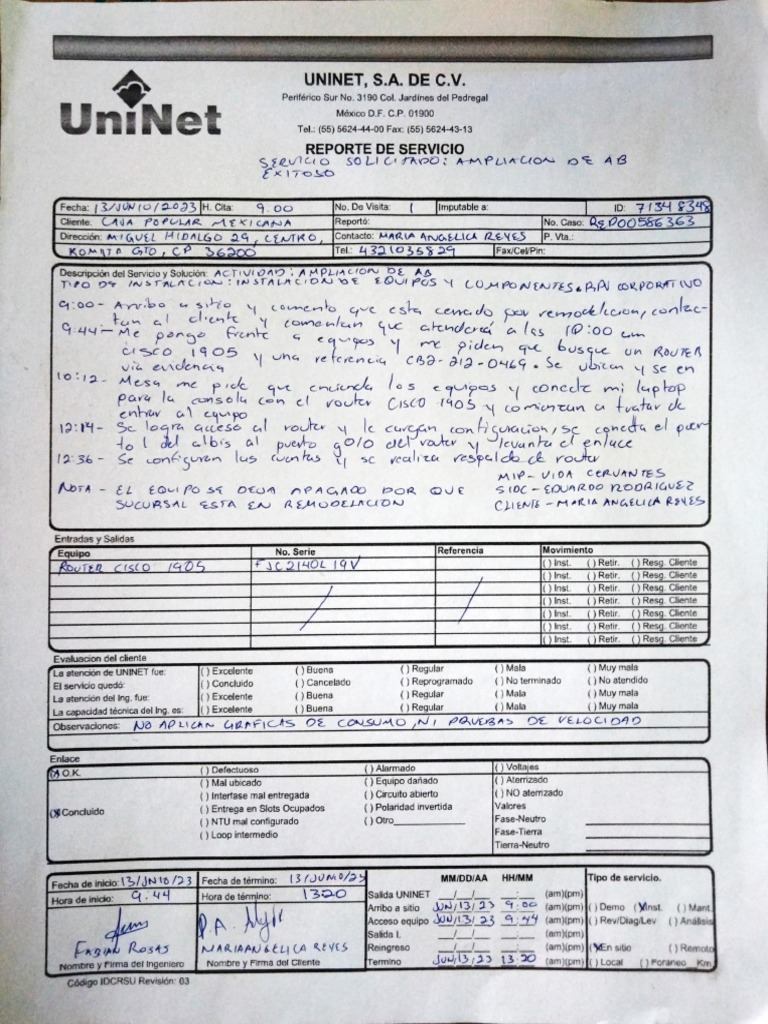 UniNet
UNINET, S.A. DE C.V.
Periférico Sur No. 3190 Col. Jardines del Pedregal
México D.F. C.P. 01900
Tel.: (55) 5624-44-00 Fax: (55) 5624-43-13
REPORTE DE SERVICIO
SERVICIO SOLICITADO: AMPLIACION DE AB
EXITOSO
Fecha: 13/JUNIO/2023 H. Cita: 9.00 No. De Visita: 1 Imputable a: ID: 71348348
Cliente: CAJA POPULAR MEXICANA Reportó: No. Caso: REP00586363
Dirección: MIGUEL HIDALGO 29, CENTRO, Contacto: MARIA ANGELICA REYES P. Vta.:
ROMITA GTO, CP 36200 Tel.: 4321035829 Fax/Cel/Pin:
Descripción del Servicio y Solución: ACTIVIDAD: AMPLIACION DE AB
TIPO DE INSTALACION: INSTALACION DE EQUIPOS Y COMPONENTES CORPORATIVO
9:00- Arribo a sitio y comento que esta cerrado por remodelacion, contac-
tan al cliente y comentan que atenderá a las 10:00 am
9:44- Me pongo frente a equipos y me piden que busque un ROUTER
CISCO 1905 y una referencia CB2-212-0469. Se ubican y se en
via evidencia
10:12- Mesa me pide que encienda los equipos y conecte mi laptop
para la consola con el router CISCO 1905 y comienzan a tratar de
entrar al equipo
12:14- Se logra acceso al router y le cargan configuración, se conecta el puer-
to 1 del albis al puerto g0/0 del router y levanta el enlace
12:36- Se configuran las cuentas y se realiza respaldo de router
MIP- VIDA CERVANTES
NOTA - EL EQUIPO SE DEJA APAGADO POR QUE SIDC- EDUARDO RODRIGUEZ
SUCURSAL ESTA EN REMODELACION CLIENTE- MARIA ANGELICA REYES
Entradas y Salidas
Equipo No. Serie Referencia Movimiento
ROUTER CISCO 1905 FJC2140L19V ( ) Inst. ( ) Retir. ( ) Resg. Cliente
( ) Inst. ( ) Retir. ( ) Resg. Cliente
( ) Inst. ( ) Retir. ( ) Resg. Cliente
( ) Inst. ( ) Retir. ( ) Resg. Cliente
( ) Inst. ( ) Retir. ( ) Resg. Cliente
( ) Inst. ( ) Retir. ( ) Resg. Cliente
( ) Inst. ( ) Retir. ( ) Resg. Cliente
Evaluacion del cliente
La atención de UNINET fue: ( ) Excelente ( ) Buena ( ) Regular ( ) Mala ( ) Muy mala
El servicio quedó: ( ) Concluido ( ) Cancelado ( ) Reprogramado ( ) No terminado ( ) No atendido
La atención del Ing. fue: ( ) Excelente ( ) Buena ( ) Regular ( ) Mala ( ) Muy mala
La capacidad técnica del Ing. es: ( ) Excelente ( ) Buena ( ) Regular ( ) Mala ( ) Muy mala
Observaciones: NO APLICAN GRAFICAS DE CONSUMO, NI PRUEBAS DE VELOCIDAD
Enlace
(X) O.K. ( ) Defectuoso ( ) Alarmado ( ) Voltajes
( ) Mal ubicado ( ) Equipo dañado ( ) Aterrizado
( ) Interfase mal entregada ( ) Circuito abierto ( ) NO aterrizado
(X) Concluido ( ) Entrega en Slots Ocupados ( ) Polaridad invertida Valores
( ) NTU mal configurado ( ) Otro Fase-Neutro
( ) Loop intermedio Fase-Tierra
Tierra-Neutro
Fecha de inicio: 13/JNIO/23 Fecha de término: 13/JUNIO/23 MM/DD/AA HH/MM Tipo de servicio.
Hora de inicio: 9.44 Hora de término: 1320 Salida UNINET __/__/__ : (am)(pm)
Arribo a sitio JUN/13/23 9:00 (am)(pm) ( ) Demo (X) Inst. ( ) Mant.
Acceso equipo JUN/13/23 9:44 (am)(pm) ( ) Rev/Diag/Lev ( ) Análisis
Salida I. __/__/__ : (am)(pm)
P.A.
FABIAN ROSAS MARIA ANGELICA REYES Reingreso __/__/__ : (am)(pm) (X) En sitio ( ) Remoto
Nombre y Firma del Ingeniero Nombre y Firma del Cliente Termino JUN/13/23 13:20 (am)(pm) ( ) Local ( ) Foraneo __Km.
Código IDCRSU Revisión: 03